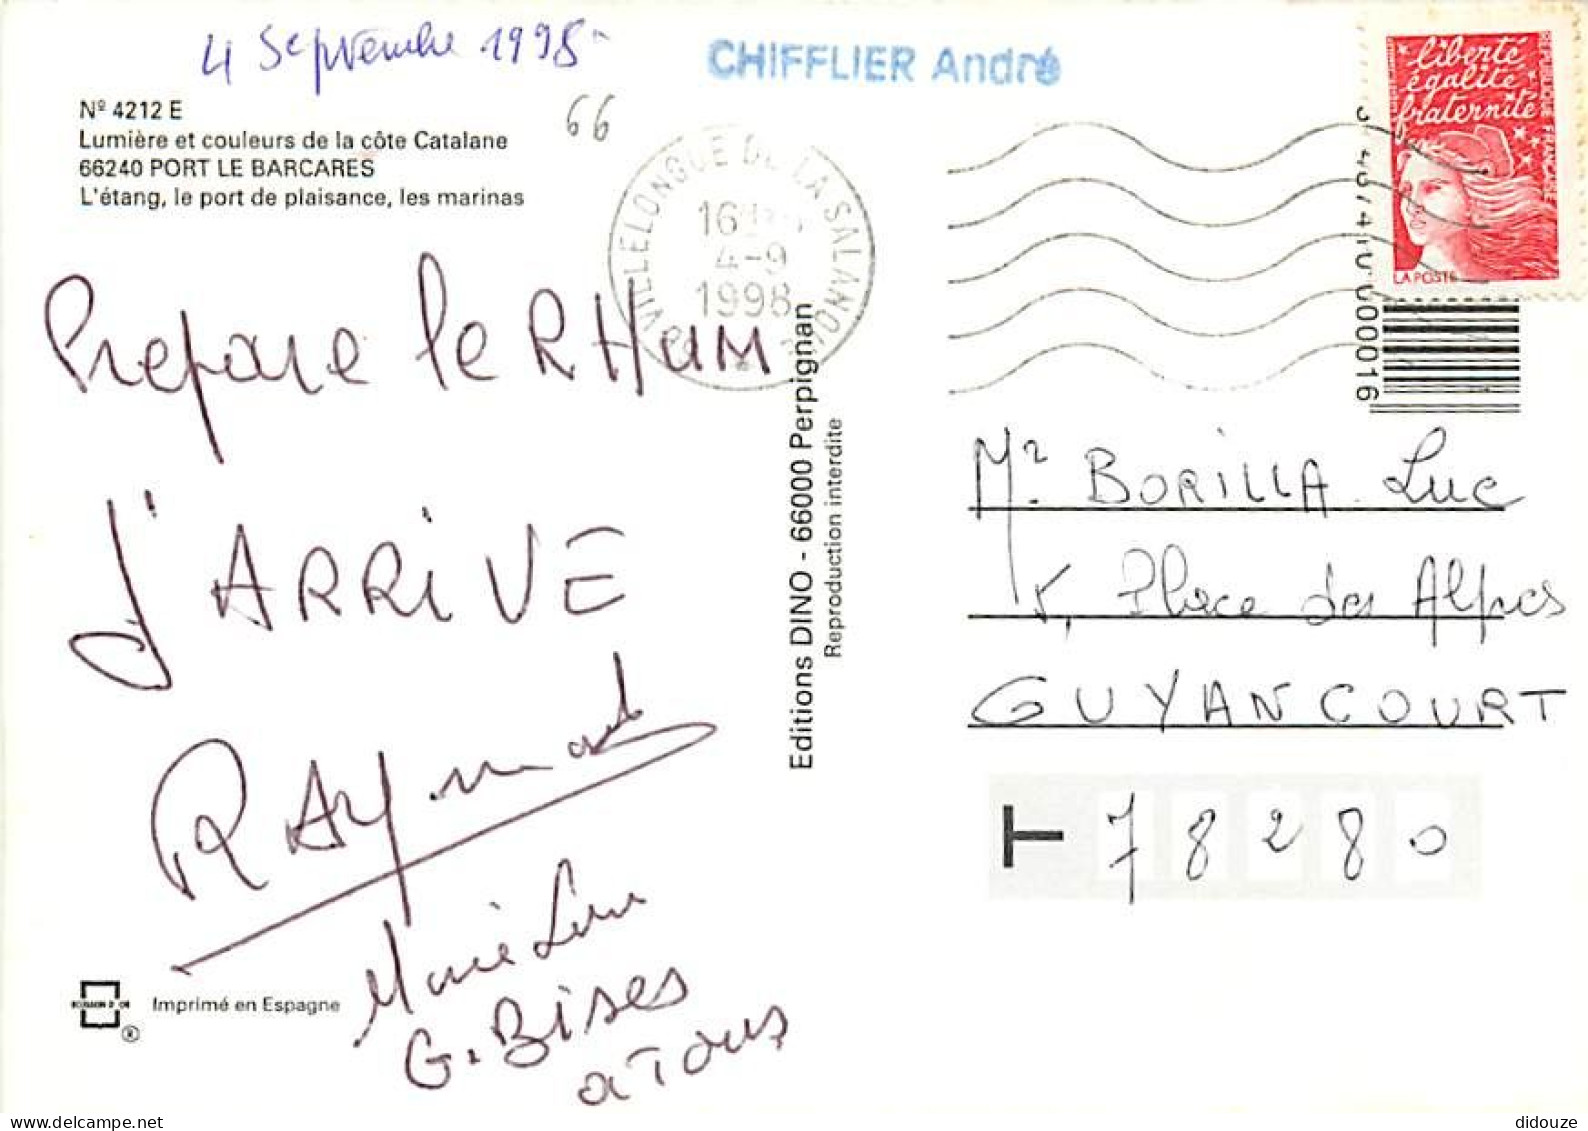 4 Septembre 1998
CHIFFLIER André
66
Nº 4212 E
Lumière et couleurs de la côte Catalane
66240 PORT LE BARCARES
L'étang, le port de plaisance, les marinas
VILLELONGUE DE LA SALANQUE
16H
4-9
1998
liberté
égalité
fraternité
RÉPUBLIQUE FRANÇAISE
LA POSTE
00016
Prepare le RHUM
J'ARRIVE
RAYmond
Marie Lou
G. BISES
a Tous
Editions DINO - 66000 Perpignan
Reproduction interdite
Mr. BORILLA Luc
5, Place des Alpes
GUYANCOURT
T 78280
Imprimé en Espagne
®
delcampe.net
didouze